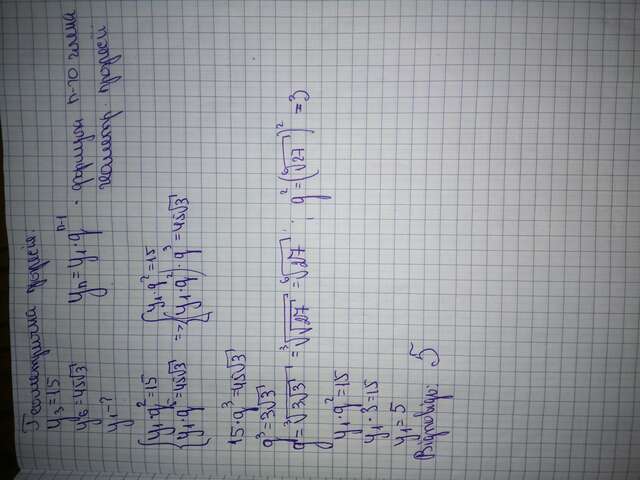 Геометрична прогресія:
y₃=15
y₆=45√3    yₙ=y₁·qⁿ⁻¹ · формули n-го члена
геометр. прогресії
y₁-?
{y₁·q²=15    {y₁·q²=15
{y₁·q⁵=45√3  =>  {(y₁·q²)·q³=45√3
15·q³=45√3
q³=3√3
q=³√(3√3)=³√(√27)=⁶√27 ; q²=(⁶√27)²=3
y₁·q²=15
y₁·3=15
y₁=5
Відповідь: 5